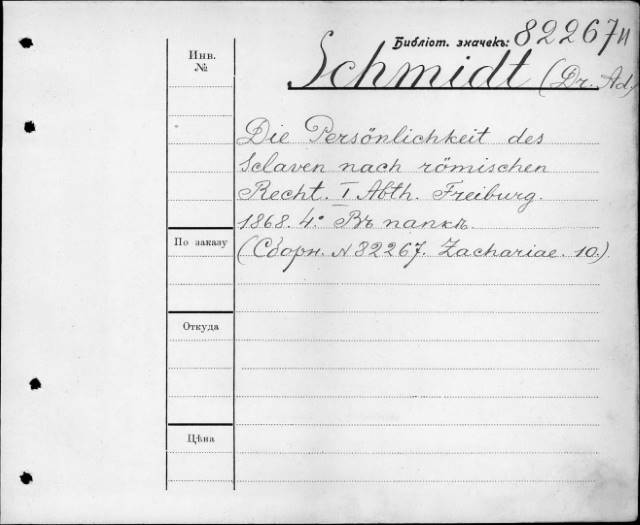 Библіот. значекъ: 82267п
Schmidt (Dr. Ad.)
Инв.
№
Die Persönlichkeit des
Sclaven nach römischen
Recht. I Abth. Freiburg.
1868. 4° Въ папкѣ.
(Сборн. № 82267. Zachariae. 10.)
По заказу
Откуда
Цѣна